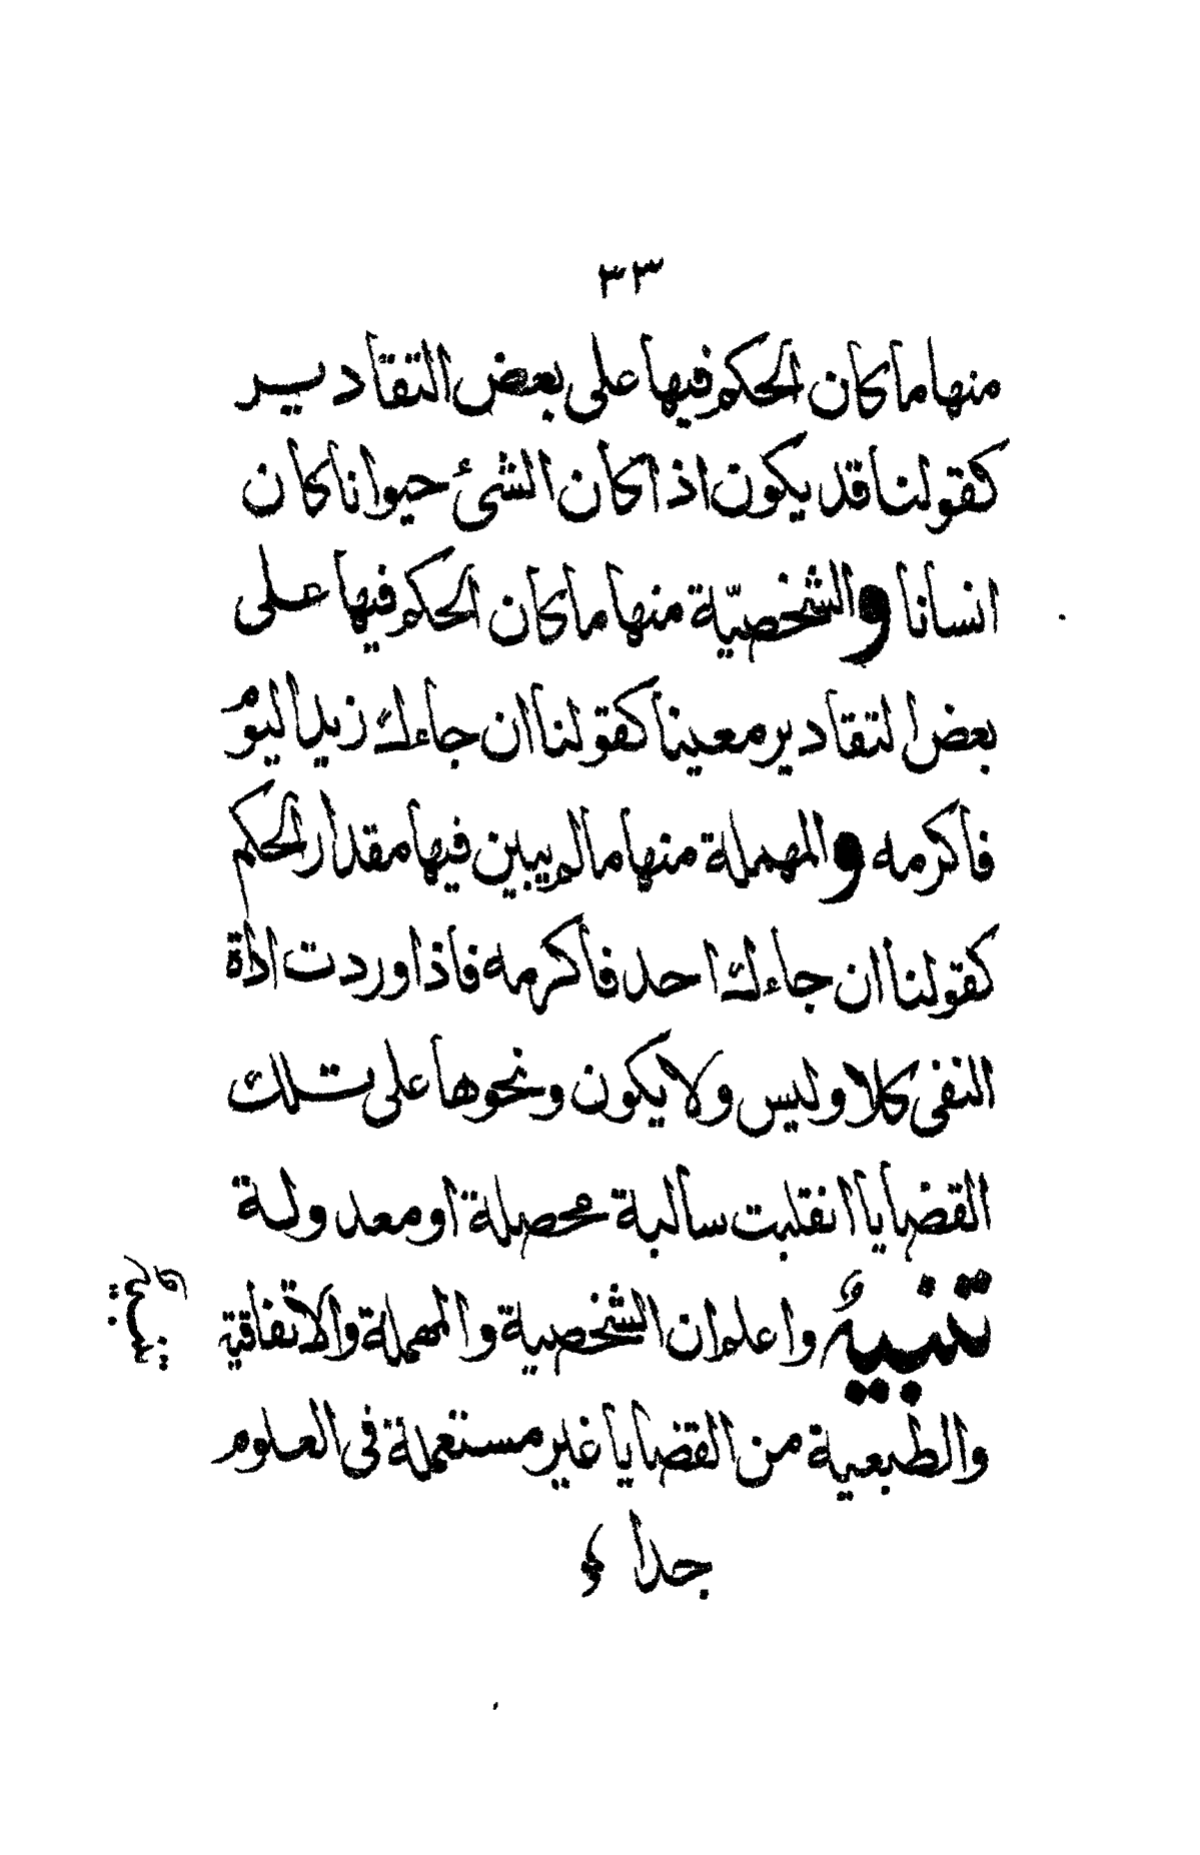 ٣٣
منها ما كان الحكم فيها على بعض التقادير
كقولنا قد يكون اذا كان الشئ حيوانا كان
انسانا والشخصيّة منها ما كان الحكم فيها على
بعض التقادير معينا كقولنا ان جاءك زيد اليوم
فاكرمه والمهملة منها مالم يبين فيها مقدار الحكم
كقولنا ان جاءك احد فاكرمه فاذا وردت اداة
النفى كلا وليس ولا يكون ونحوها على تلك
القضايا انقلبت سالبة محصلة او معدولة
تنبيهٌ واعلم ان الشخصية والمهملة والاتفاقية
والطبعية من القضايا غير مستعملة فى العلوم
جدا